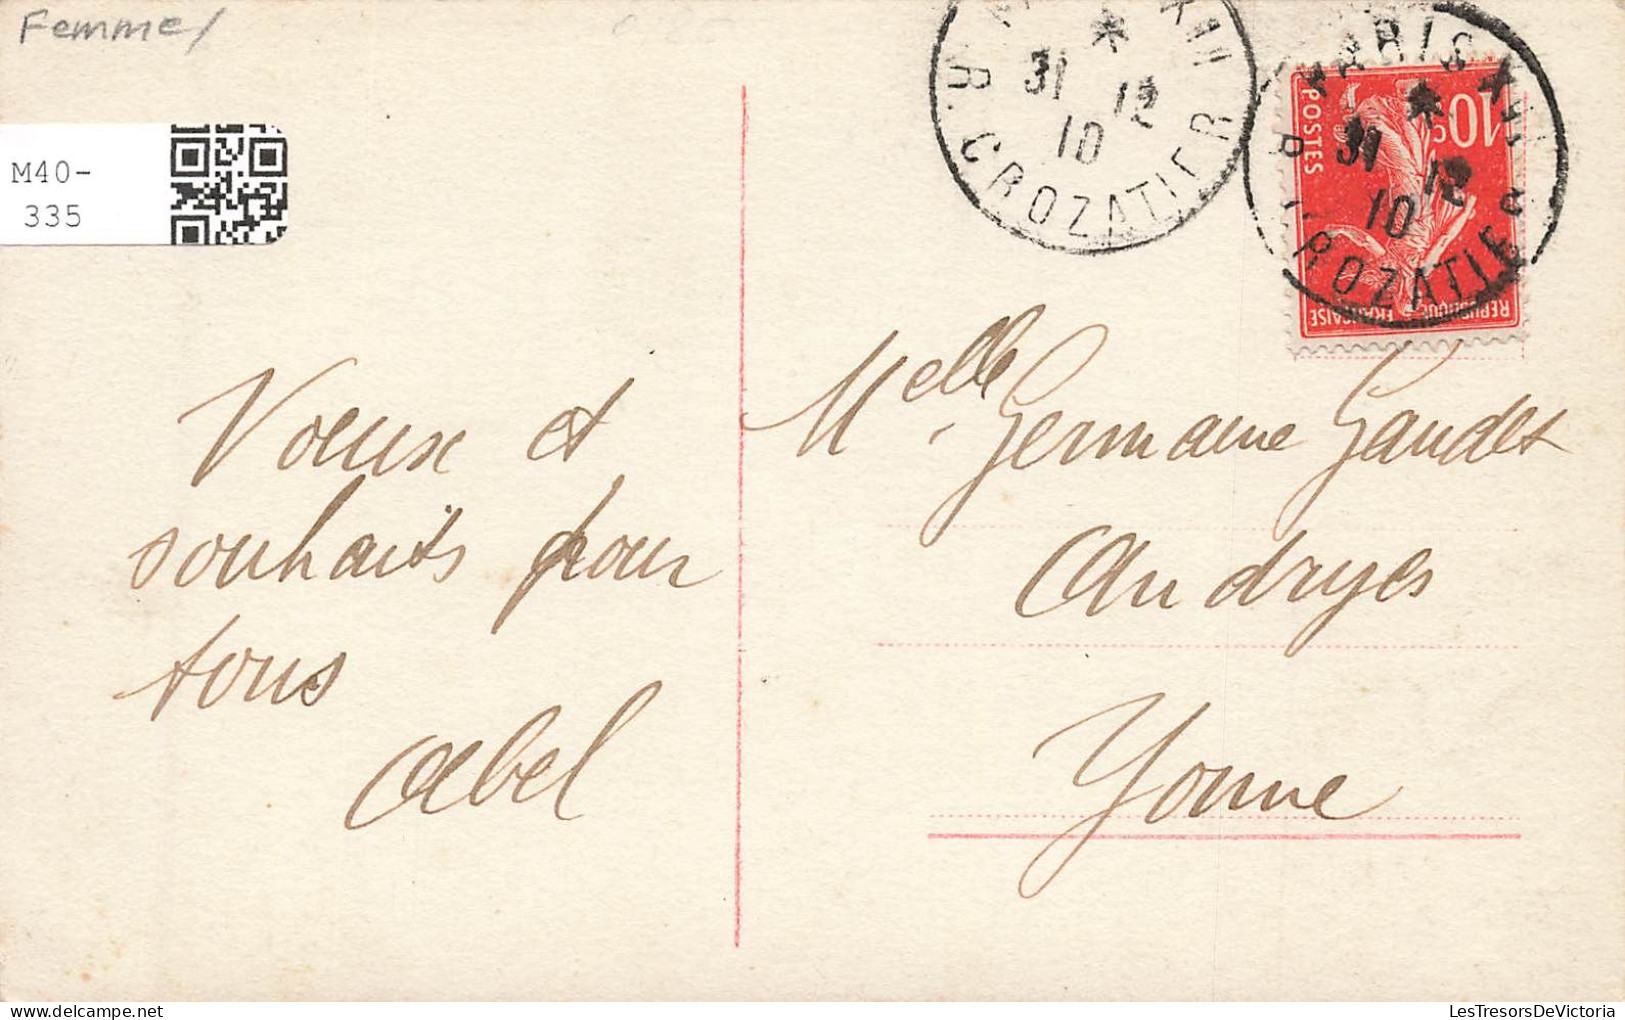 Femme
M40-
335
31 12
10
R. CROZATIER
PARIS XII
31 12
10
R. CROZATIER
10c
POSTES
REPUBLIQUE FRANÇAISE
Voeux et
souhaits pour
tous
Abel
Melle Germaine Gaudet
Andryes
Yonne
LesTresorsDeVictoria